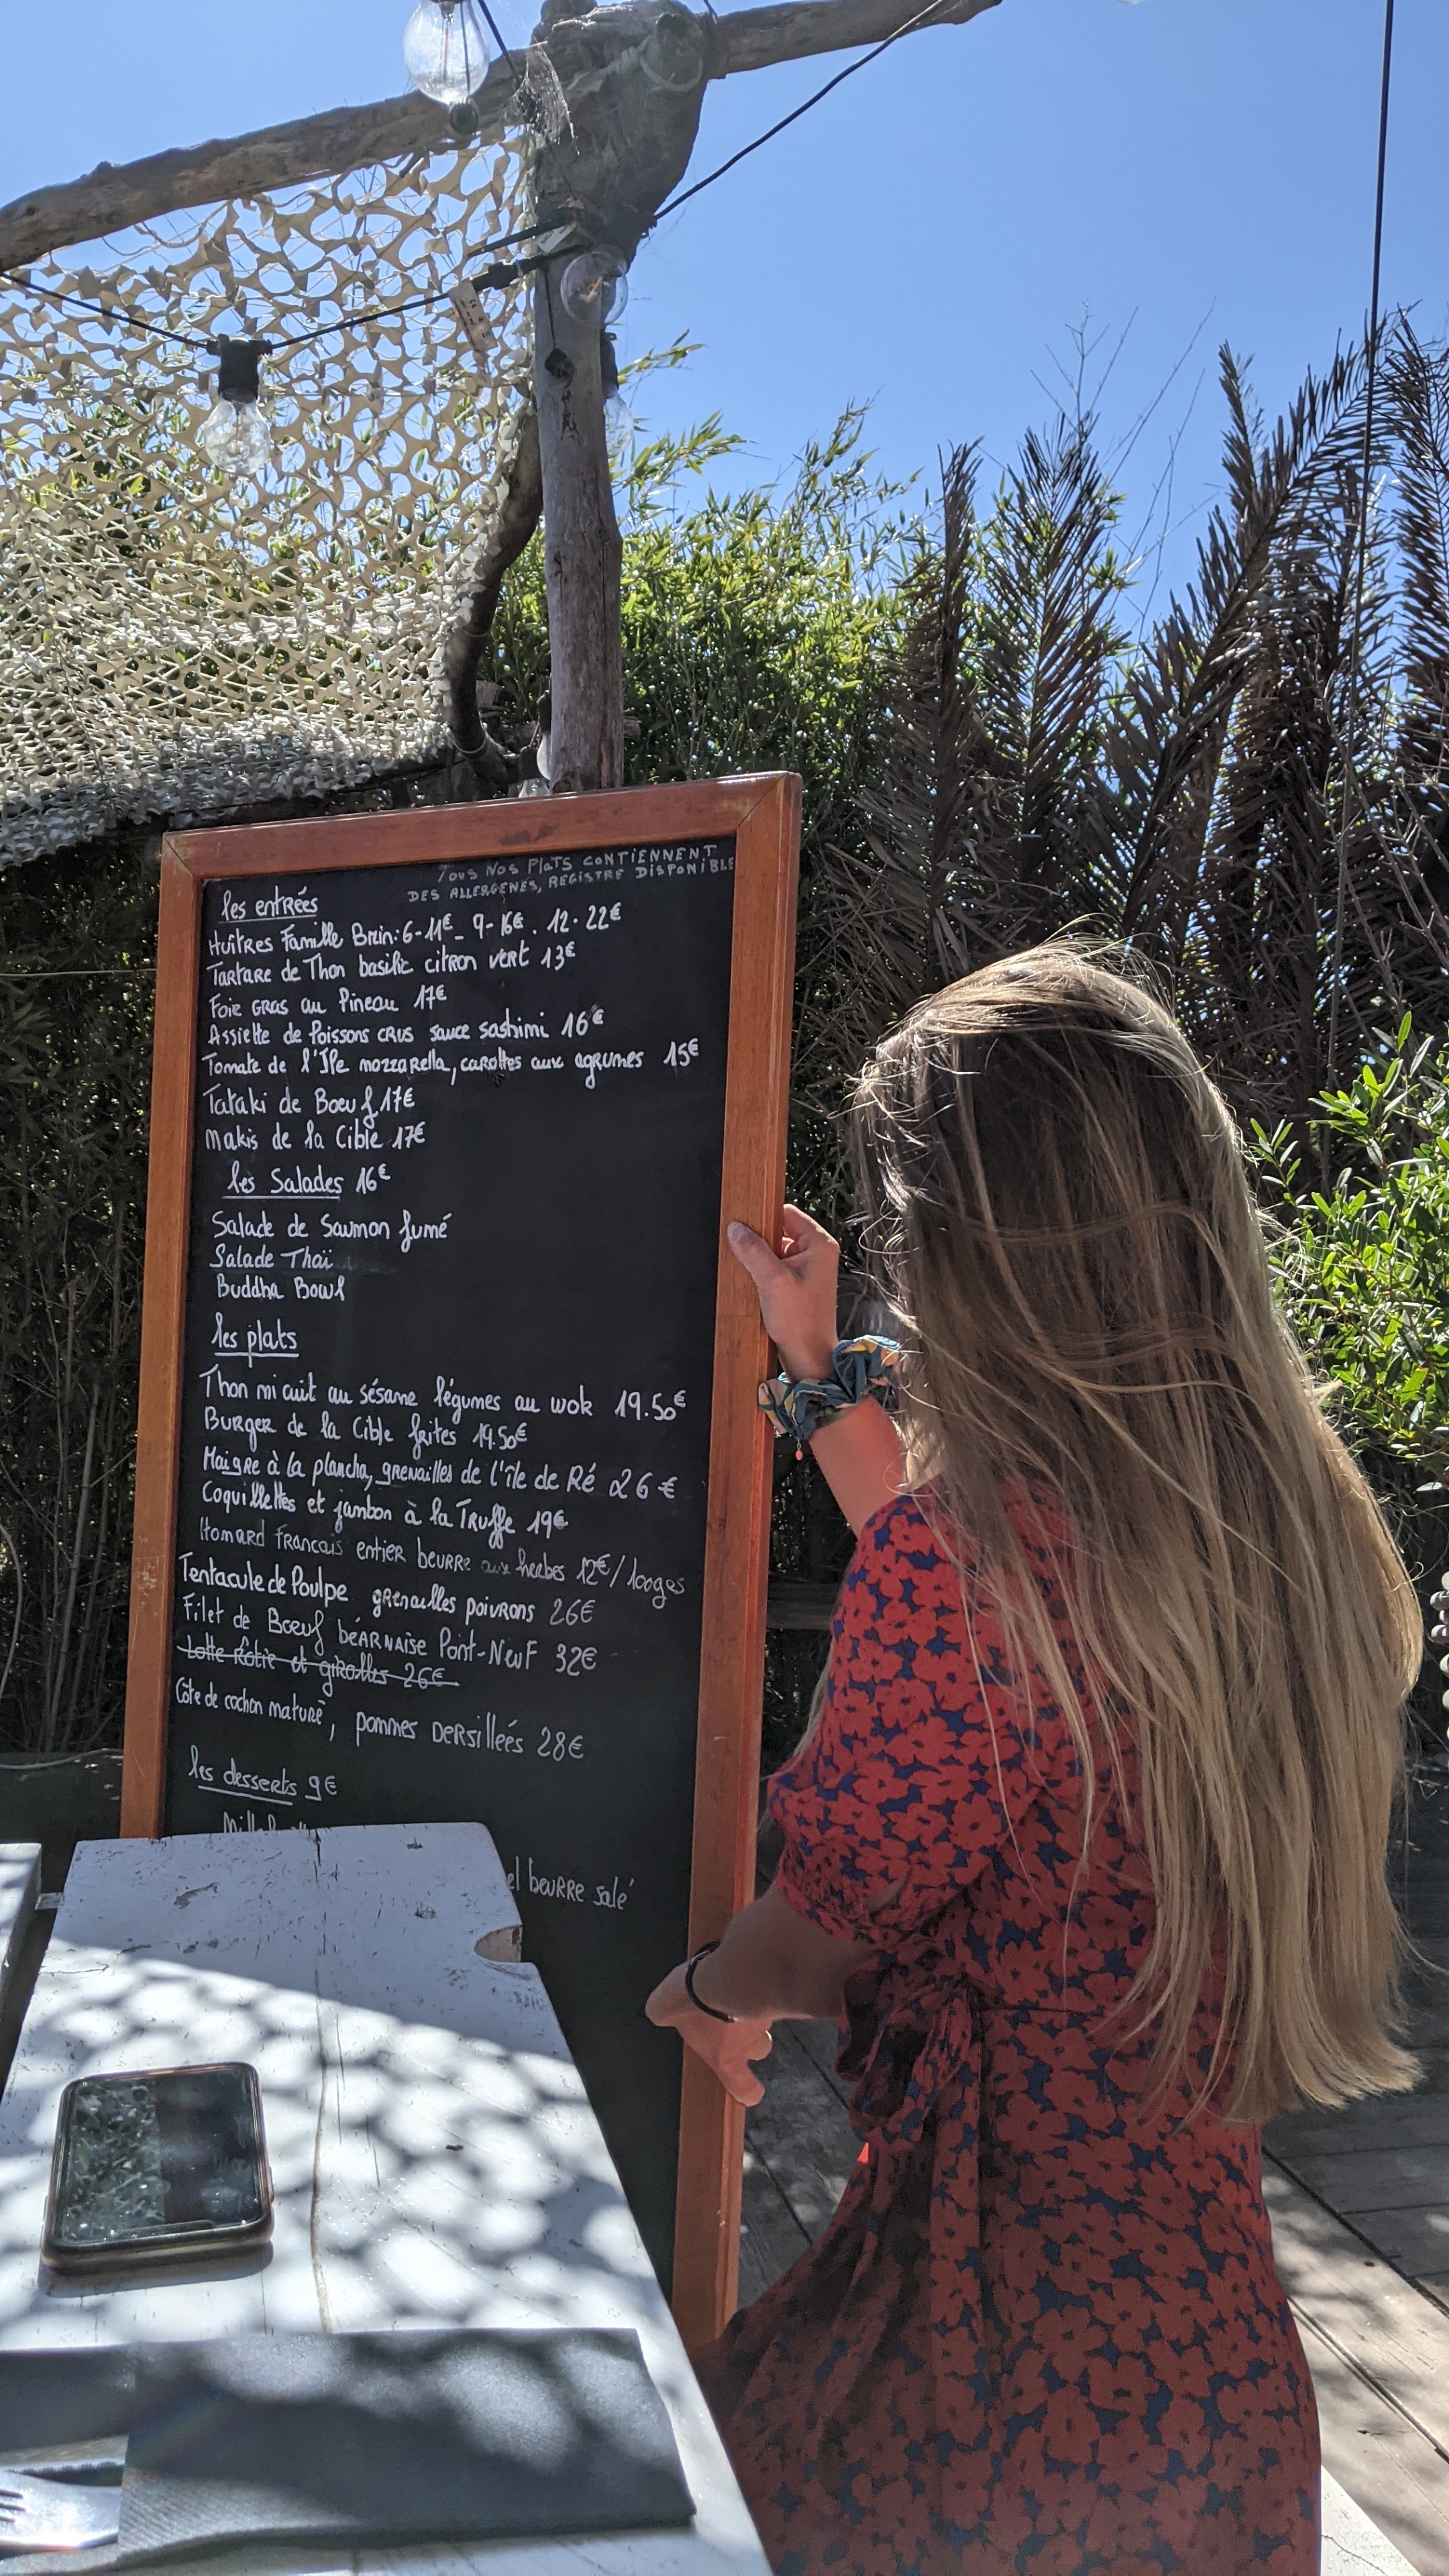 Tous Nos Plats CONTIENNENT
DES ALLERGENES, REGISTRE DISPONIBLE
les entrées
Huîtres Famille Brin: 6-11€ - 9-16€ . 12-22€
Tartare de Thon basilic citron vert 13€
Foie GRAS au Pineau 17€
Assiette de Poissons CRUS sauce sashimi 16€
Tomate de l'Ile mozzarella, carottes aux agrumes 15€
Tataki de Boeuf 17€
Makis de la Cible 17€
les Salades 16€
Salade de Saumon fumé
Salade Thaï
Buddha Bowl
les plats
Thon mi cuit au sésame légumes au wok 19.50€
Burger de la Cible frites 19.50€
Maigre à la plancha, grenailles de l'île de Ré 26€
Coquillettes et jambon à la Truffe 19€
Homard Francais entier beurre aux herbes 12€/100ges
Tentacule de Poulpe grenailles poivrons 26€
Filet de Bœuf béARNaise Pont-Neuf 32€
Lotte Rôtie et girolles 26€
Côte de cochon maturé, pommes persillées 28€
les desserts 9€
el beurre salé